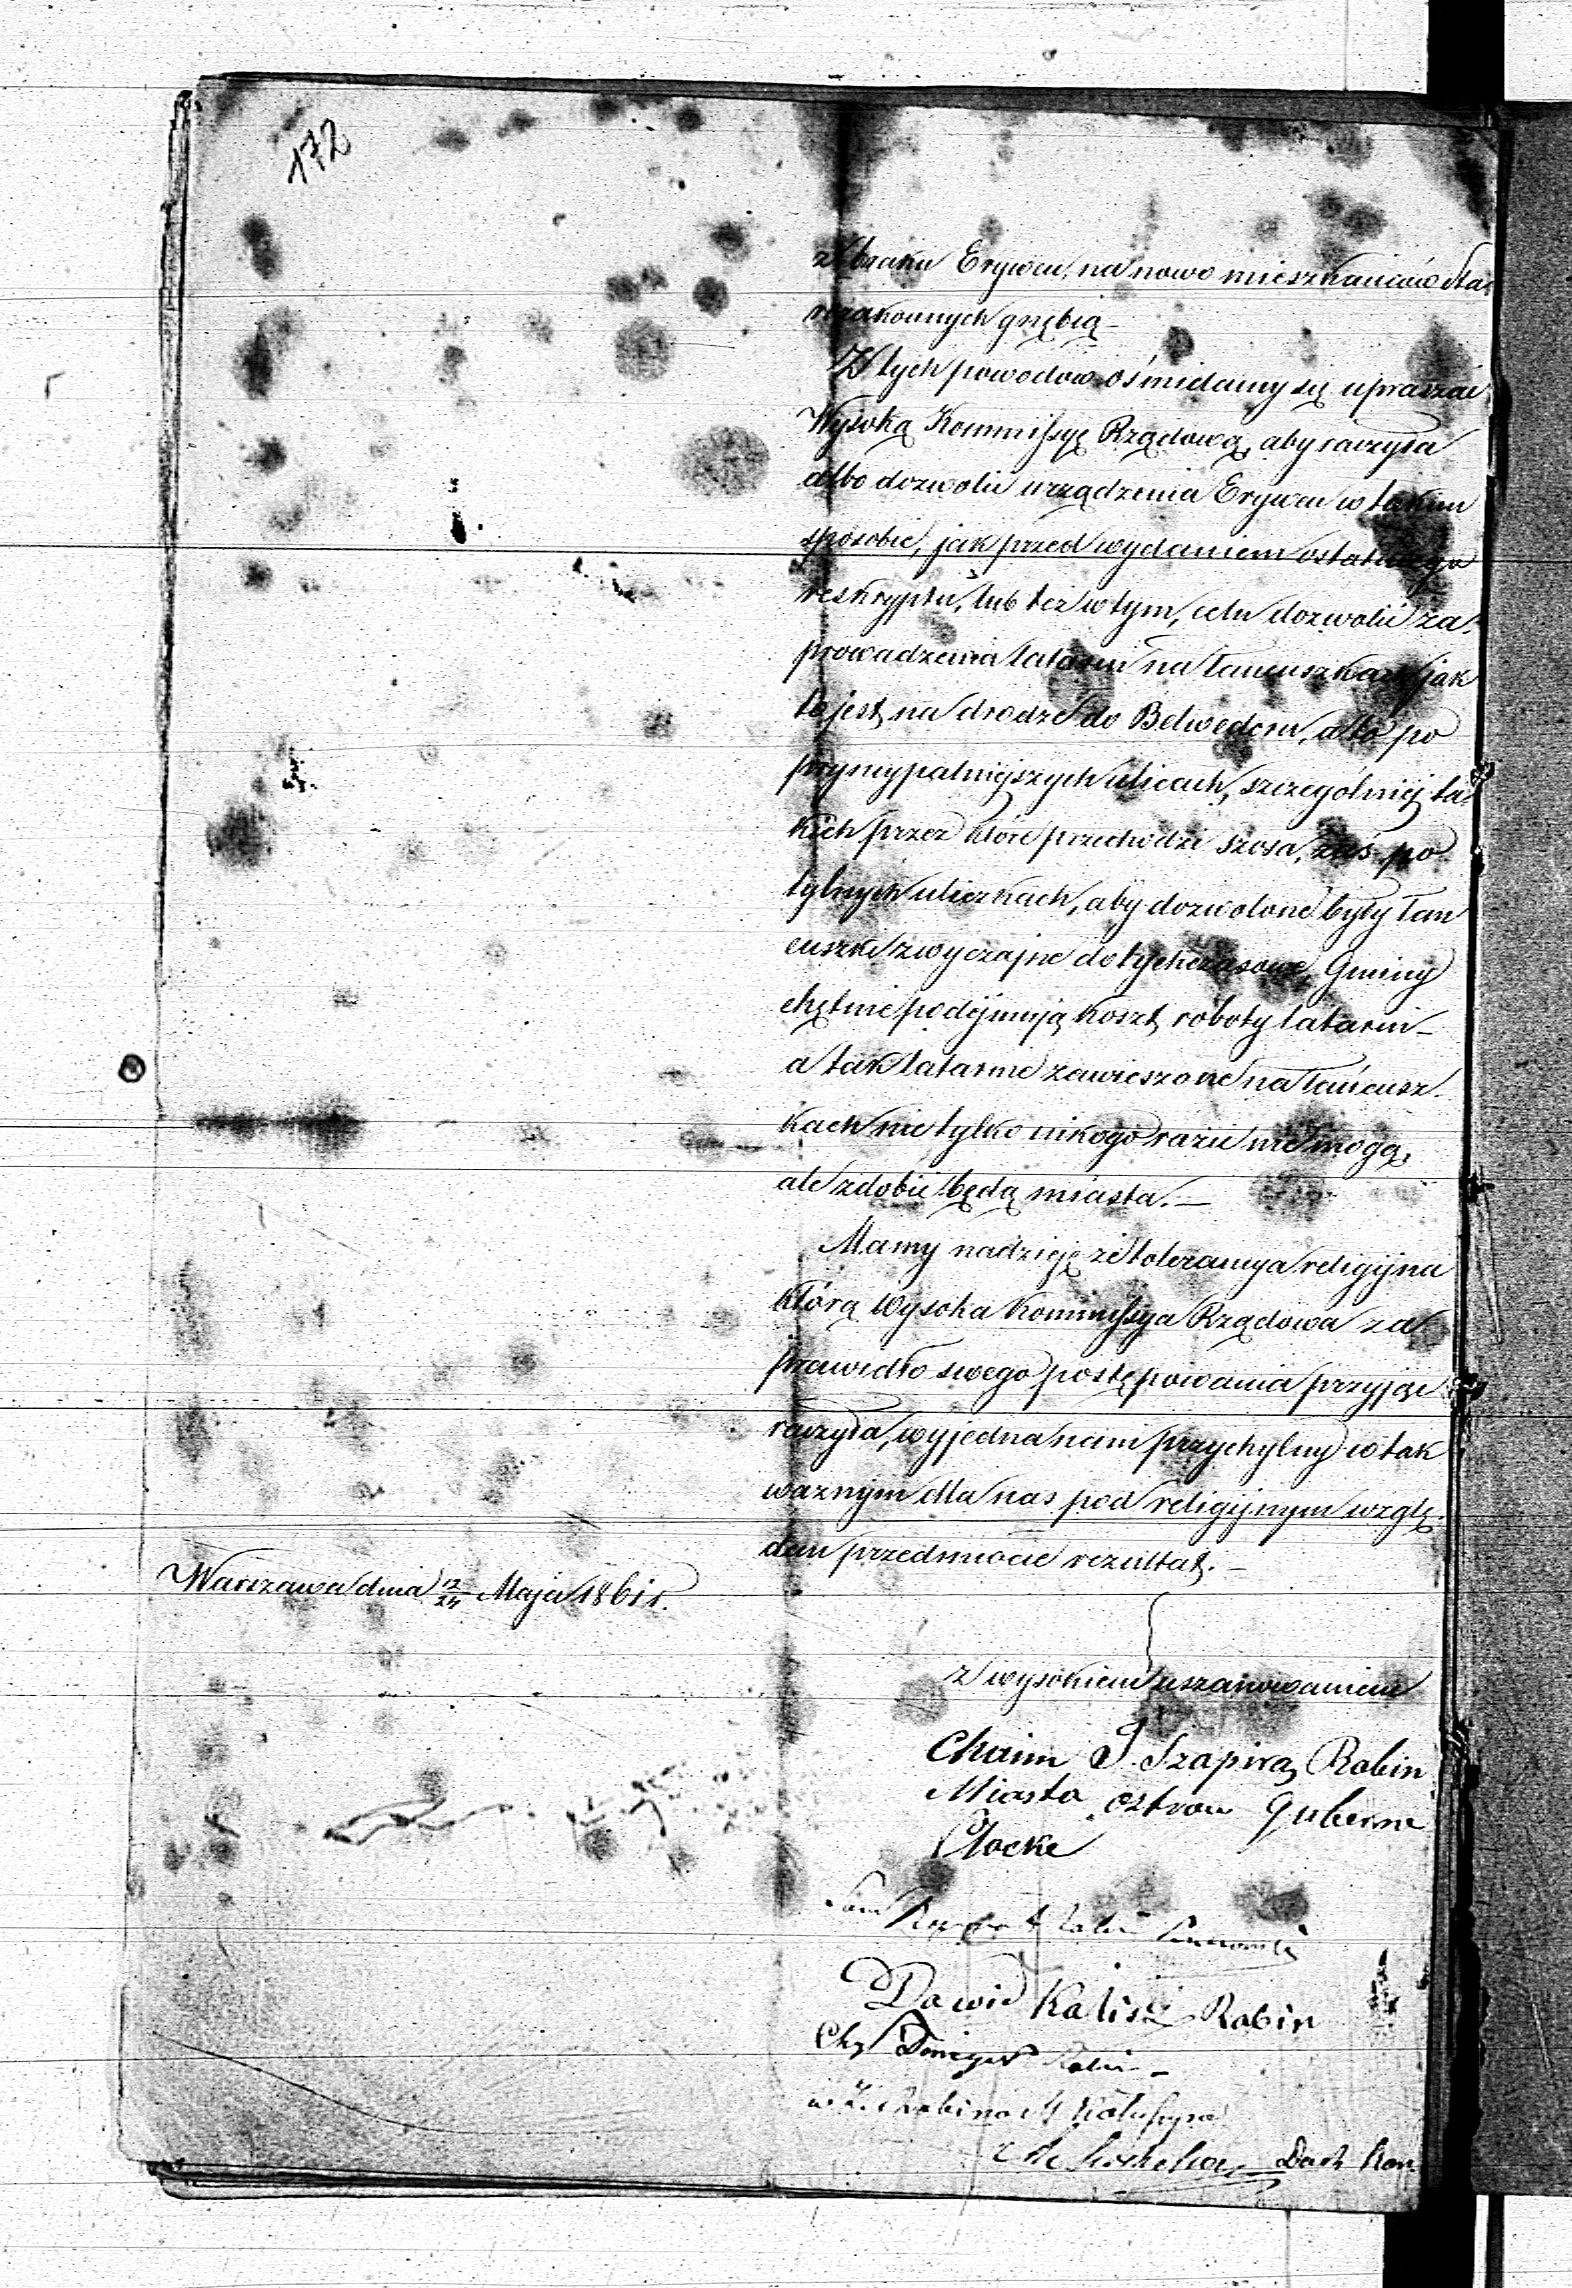 172
z braku Erywcu, na nowo mieszkańców sta-
rozakonnych gnębią –
Z tych powodów ośmielamy się upraszać
Wysoką Kommissyę Rządową, aby raczyła
albo dozwolić urządzenia Erywcu w takim
sposobie, jak przed wydaniem ostatniego
reskryptu, lub też w tym, celu dozwolić za-
prowadzenia latarni na łańcuszkach jak
to jest na drodze do Belwederu, a to po
pryncypalniejszych ulicach, szczególniej ta-
kich przez które przechodzi szosa, zaś po
tylnych uliczkach, aby dozwolone były łan
cuszki zwyczajne dotychczasowe, Gminy
chętnie podejmują koszt roboty latarni –
a tak latarnie zawieszone na łańcusz-
kach nie tylko nikogo razić nie mogą,
ale zdobić będą miasta. –
Mamy nadzieję że tolerancya religijna
którą Wysoka Kommissya Rządowa za
prawidło swego postępowania przyjąć
raczyła, wyjedna nam przychylny w tak
ważnym dla nas pod religijnym wzglę-
dem przedmiocie rezultat. –
Warszawa dnia 12/24 Maja 1861 r.
z wysokiem uszanowaniem
Chaim J. Szapira Rabin
Miasta Ostrow Guberni
Płocke
Dawid Kalisz Rabin
Rabin –